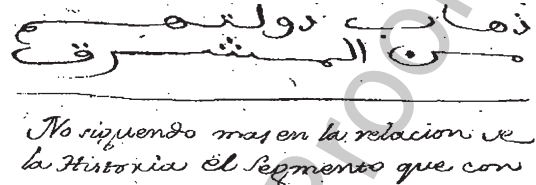 ذهاب دولتهم
من المشرق
No siguendo mas en la relacion de
la Historia el Segmento que con